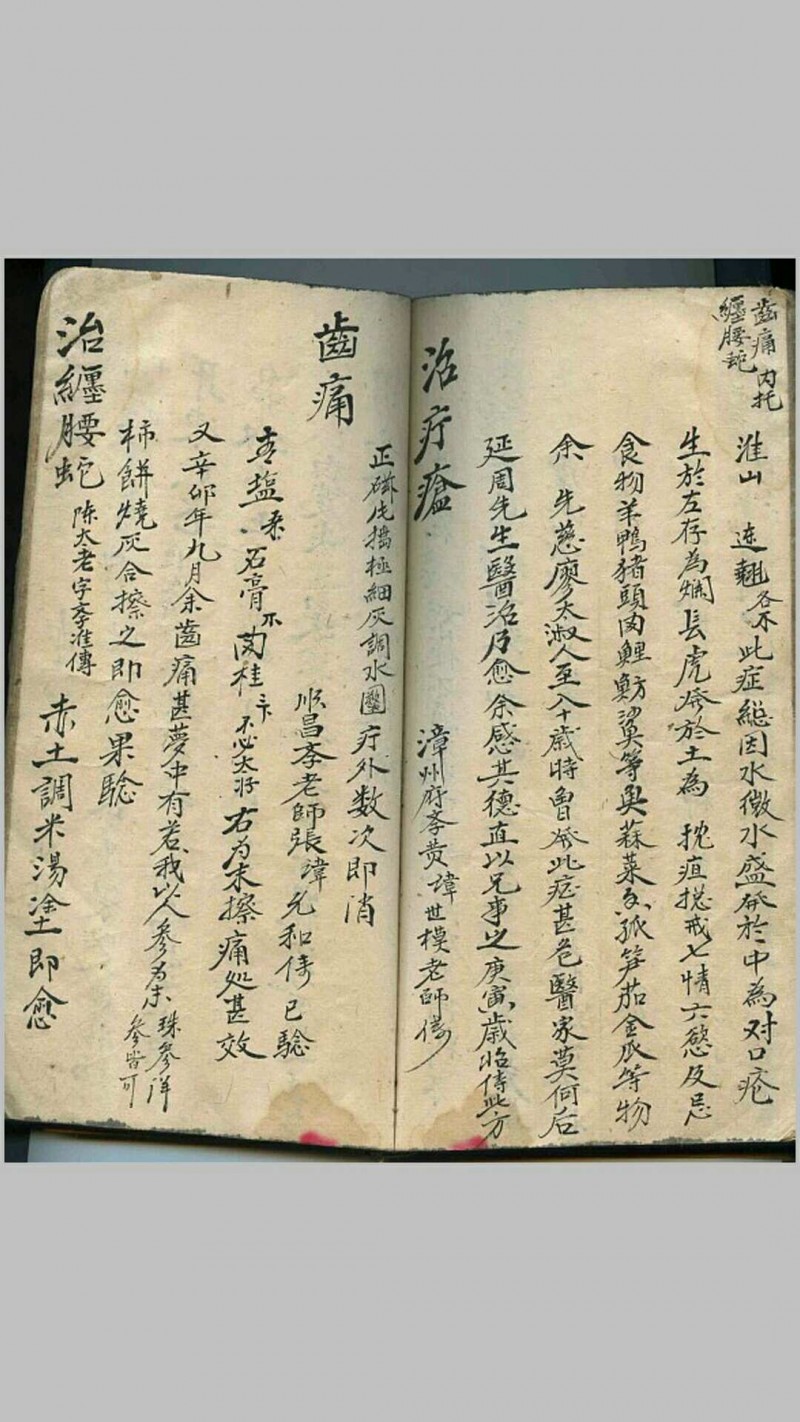 齒痛 內托
纏腰蛇
淮山 連翹各 此症総因水微水盛發於中為对口疮
生於左存為 長虎發於土為 疽揔戒七情六慾及忌
食物羊鴨豬頭肉鯉 等臭蔴菜 孤笋茄金瓜等物
余 先慈廖太淑人至八十歲時曾發此症甚危醫家莫何后
延周先生醫治乃愈余感其德直以兄事之庚寅歲 此方
治疔瘡
漳州府李黄諱世模老師傳
正磁 擂極細灰調水圍疔外数次即消
齒痛
順昌李老師張諱允和傳 已騐
青塩 石膏 肉桂 不必太好 右为末擦痛处甚效
又辛卯年九月余齒痛甚夢中有 我以人參为末 珠參洋
參皆可
柿餅燒灰合擦之即愈果騐
治纏腰蛇 陈太老字季淮傳 赤土調米湯塗即愈